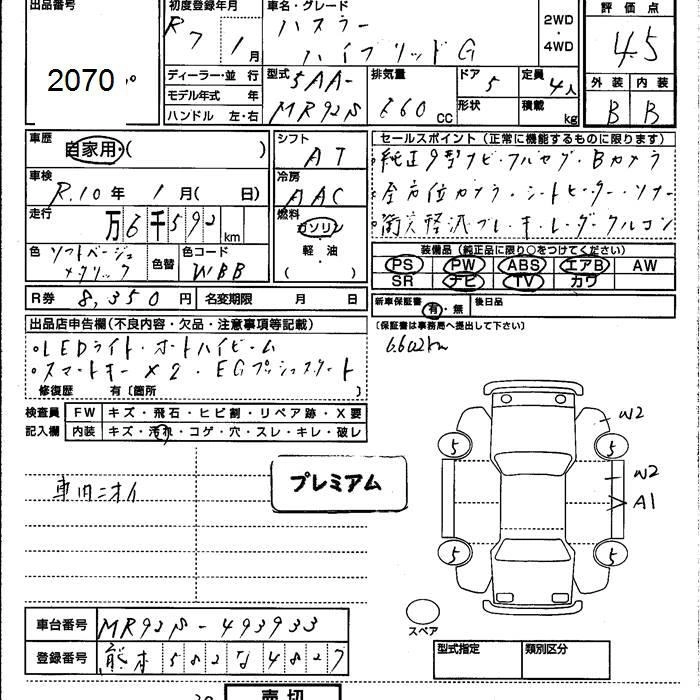 出品番号
2070
初度登録年月
R 7 / 1 月
車名・グレード
ハスラー
ハイブリッドG
2WD
・
4WD
評価点
4.5
外装 内装
B B
ディーラー・並行
モデル年式 年
ハンドル 左・右
型式 5AA-
MR92S
排気量
660 CC
ドア 5
形状
定員 4人
積載 kg
車歴
自家用・( )
シフト
AT
セールスポイント (正常に機能するものに限ります)
・純正9型ナビ・フルセグ・Bカメラ
・全方位カメラ・シートヒーター・ソナー
・衝突軽減ブレーキ・レーダークルコン
車検
R.10 年 1 月 ( 日)
冷房
AAC
走行
万 6 千 592 km
燃料
ガソリン
軽・油
( )
色 ソフトベージュ
メタリック
色替
色コード
WBB
装備品 (純正品に限り○をつけてください)
PS PW ABS エアB AW
SR ナビ TV カワ
R券 8,350 円
名変期限 月 日
新車保証書 有・無
後日品
(保証書は事務局へ提出して下さい)
出品店申告欄(不良内容・欠品・注意事項等記載)
・LEDライト・オートハイビーム
・スマートキー×2・EGプッシュスタート
修復歴 有〔箇所 〕
6.602km
検査員 FW キズ・飛石・ヒビ割・リペア跡・X要
記入欄 内装 キズ・汚れ・コゲ・穴・スレ・キレ・破レ
車内ニオイ
プレミアム
W2
5 5
W2
A1
5 5
スペア
車台番号 MR92S-493933
登録番号 熊本 582 な 4827
型式指定 類別区分
売切